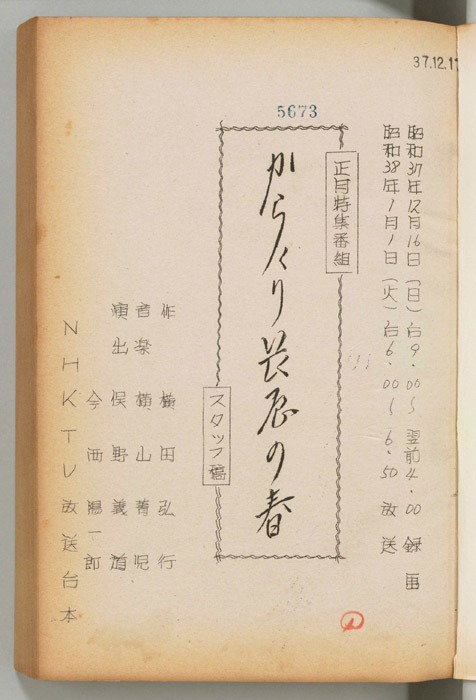 37.12.11
5673
昭和37年12月16日(日)后9.00〜翌前4.00 録画
昭和38年1月1日(火)后6.00〜6.50 放送
正月特集番組
からくり長屋の春
スタッフ稿
作 横田弘行
音楽 横山菁児
演出 俣野義道
今西陽一郎
NHKTV放送台本